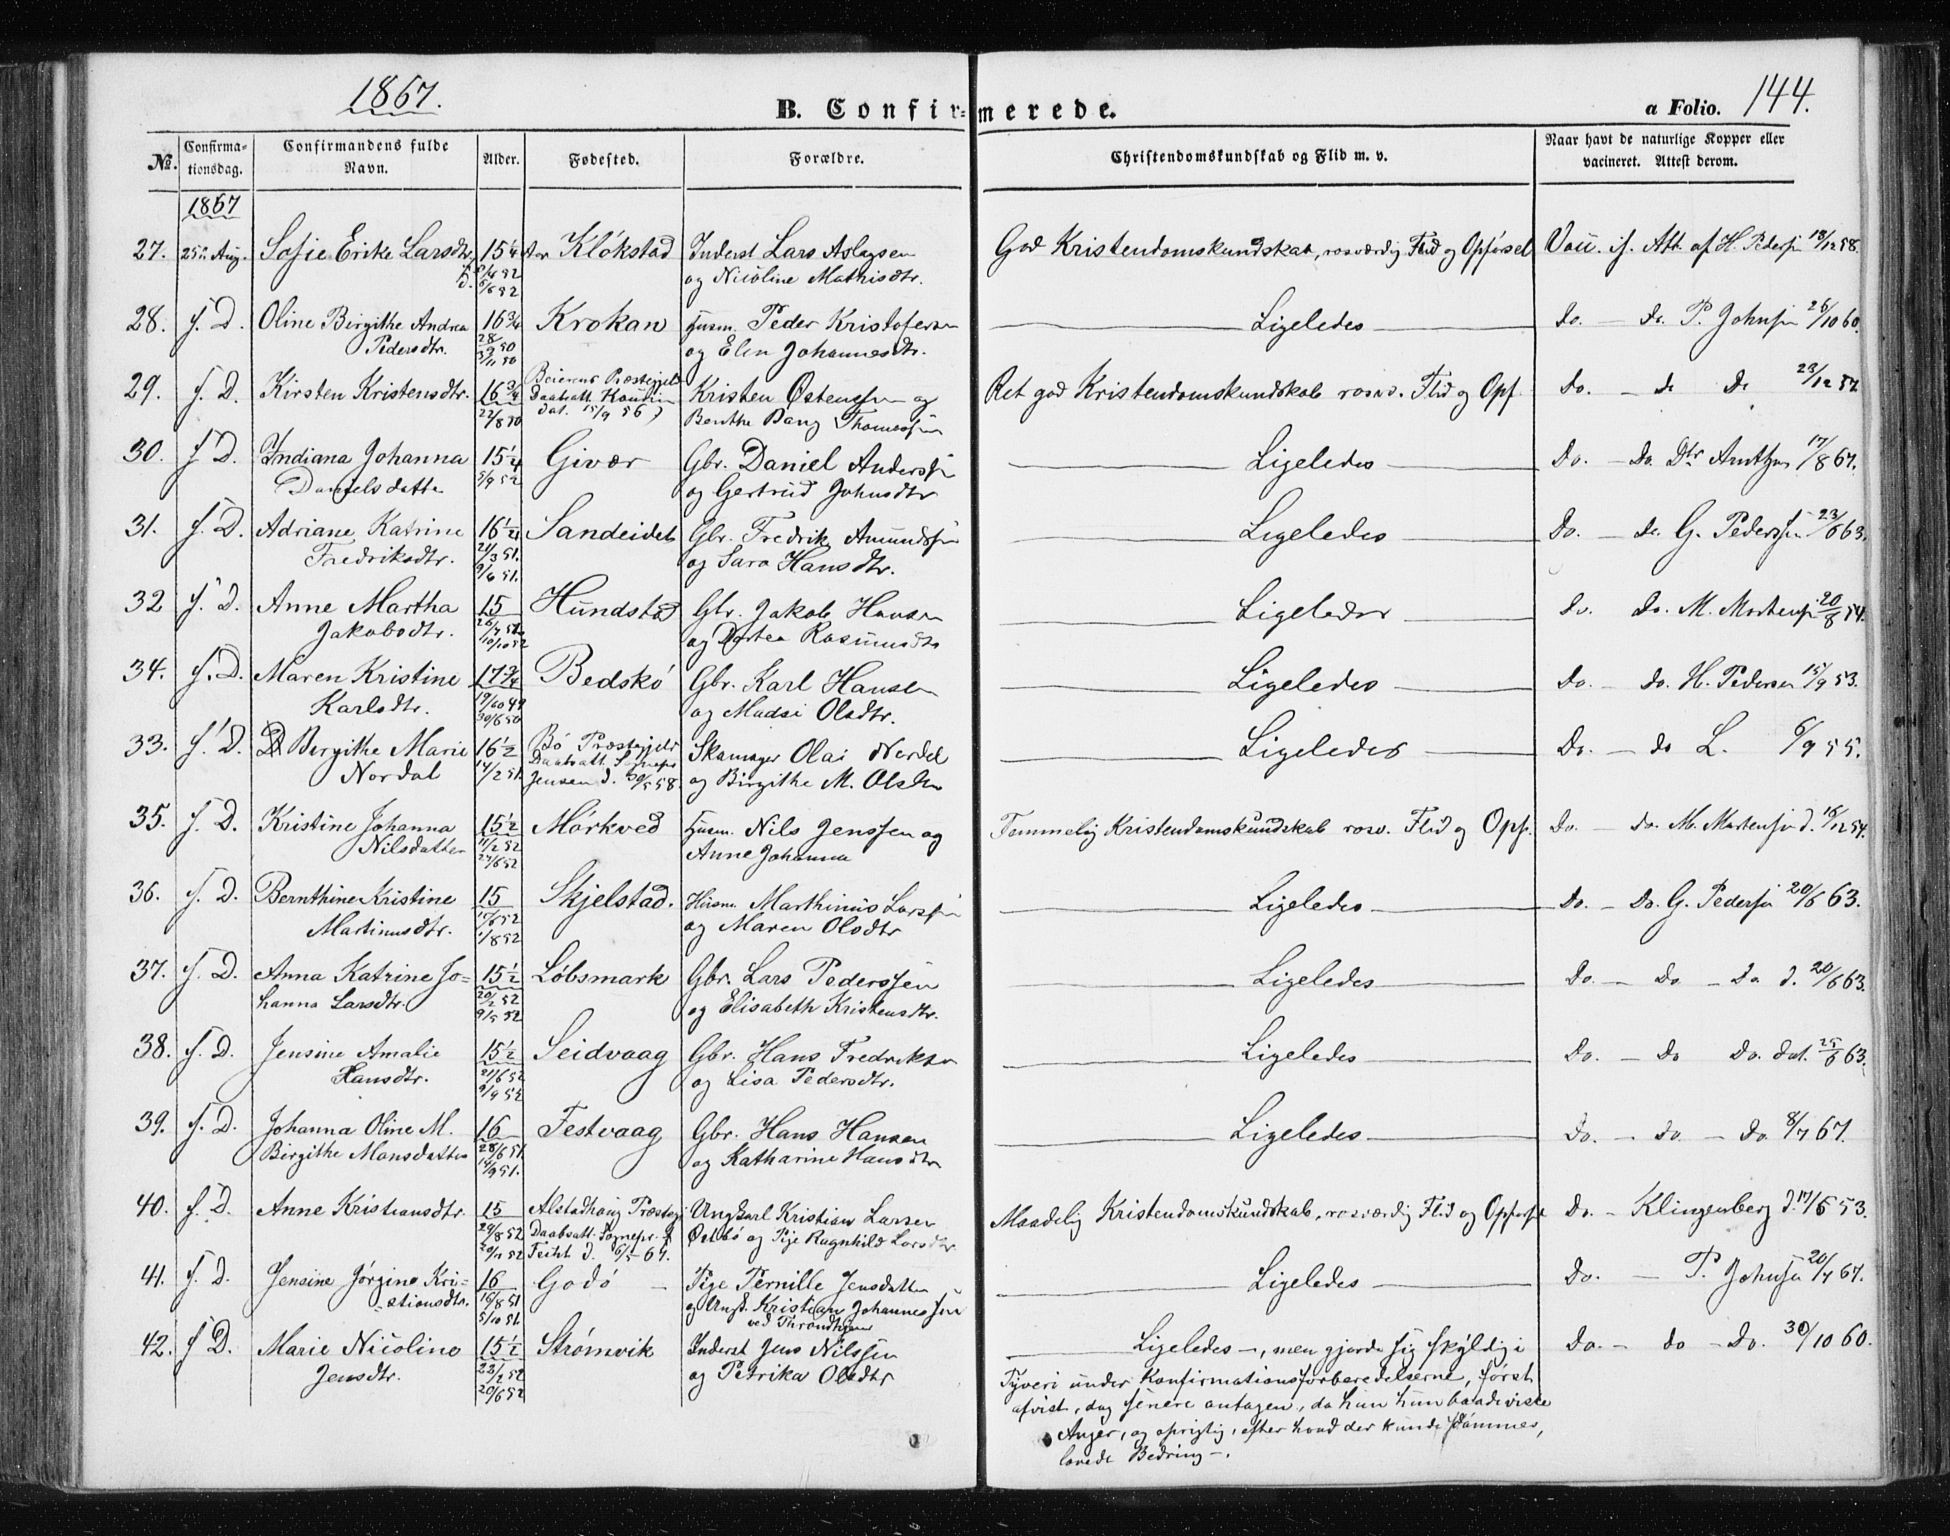 1867.
B. Confirmerede.
a Folio. 144.
No. Confirmationsdag. Confirmandens fulde Navn. Alder. Fødested. Forældre. Christendomskundskab og Flid m. v. Naar havt de naturlige Kopper eller vacineret. Attest derom.
1867
27. 25de Aug. Sofie Erike Larsdtr. 15 1/4 Klökstad Inderst Lars Aslagsen God Kristendomskundskab, rosværdig Flid og Opførsel Vac. if. Att. af H. Pedersen 18/12 58.
6/6 52 og Nicoline Mathisdtr.
28. f. D. Oline Birgithe Andrea 16 3/4 Krokan Husm. Peder Kristofersen Ligeledes Do. do. P. Johnsen 26/10 60.
Pedersdtr. 28/9 50 3/11 50 og Elen Johannesdtr.
29. f. D. Kirsten Kristensdtr. 16 3/4 Beierens Præstegjeld Kristen Østensen og Ret god Kristendomskundskab rosv. Flid og Opf. Do. - do do 23/12 52
22/8 50 Daabsatt. dat. 15/9 56 Benthe Bang Thomassen
30. f. D. Indiana Johanna 15 1/4 Givær Gbr. Daniel Anderssen Ligeledes Do. - Do. Dtr Arntzen 17/8 67.
Danielsdatter 5/9 52 og Gertrud Johnsdtr
31. f. D. Adriane Katrine 16 1/4 Sandeidet Gbr. Fredrik Amundsen Ligeledes Do. - do. G. Pederssen 23/6 63.
Fredriksdtr. 21/3 51. 9/6 51. og Sara Hansdtr.
32 f. D. Anne Martha 15 Hundstad Gbr. Jakob Hansen Ligeledes Do. do. M. Mortensen 20/8 54.
Jakobsdtr. 26/7 52 10/10 52 og Dortea Rasmusdtr
34. f. D. Maren Kristine 17 3/4 Bedskö Gbr. Karl Hansen Ligeledes Do. - do. H. Pedersen 15/9 53.
Karlsdtr. 19/10 49 30/6 50 og Madsi Olsdtr.
33. f. D. Birgithe Marie 16 1/2 Bö Præstegjeld Skomager Olai Nordal Ligeledes Do. - do L. 6/9 55.
Nordal 14/2 51. Daabsatt. Sognepr. Jensen d. 30/5 58. og Birgithe M. Olsen
35. f. D. Kristine Johanna 15 1/2 Mörkved Husm. Nils Jenssen og Temmelig Kristendomskundskab rosv. Flid og Opf. Do. - do. M. Mortensen d. 16/12 54.
Nilsdatter 11/2 52 24/6 52 Anne Johanna
36. f. D. Bernthine Kristine 15 Skjelstad. Husm. Marthinus Larssen Ligeledes Do. - Do. G. Pedersen 20/6 63.
Martinusdtr. 17/6 52 1/8 52 og Maren Olsdtr
37. f. D. Anna Katrine Jo- 15 1/2 Löbsmark Gbr. Lars Pederssen Ligeledes Do. - Do - Do d. 20/6 63.
hanna Larsdtr. 20/2 52 9/5 52 og Elisabeth Kristensdtr.
38. f. D. Jensine Amalie 15 1/2 Seidvaag Gbr. Hans Fredriksen Ligeledes Do. - Do Do. dat. 25/6 63.
Hansdtr. 21/6 52 9/9 52 og Lisa Pedersdtr.
39. f. D. Johanna Oline M. 16 Festvaag Gbr. Hans Hansen Ligeledes Do. - do - Do 8/7 67.
Birgithe Hansdatter 28/6 51. 14/9 51. og Katharine Hansdtr
40. f. D. Anne Kristiansdtr. 15 Alstadhoug Præstegj. Ungkarl Kristian Larsen Maadelig Kristendomskundskab, rosværdig Flid og Opførsel Do. - Klingenberg d. 17/6 53.
29/8 52 Daabsatt. Sognepr. d. 6/5 67. og Pige Ragnhild Larsdtr.
41. f. D. Jensine Jørgine Kri- 16 Godö Pige Pernille Jensdatter Ligeledes Do. - P. Johnsen 20/7 67.
stiansdtr. 15/8 51 5/10 51. og Ungk. Kristian Johannessen
ved Throndhjem
42. f D. Marie Nicoline 15 1/2 Strømvik Inderst Jens Nilssen Ligeledes -, men gjorde sig skyldig i Do. - do - Do. 30/10 60.
Jensdtr. 23/2 52 20/6 52 og Petrika Olsdtr Tyveri under Konfirmationsforberedelserne, først
afvist, dog senere antagen, da hun baade viste
Anger, og oprigtig, efter hvad der kunde dømmes,
lovede Bedring -.